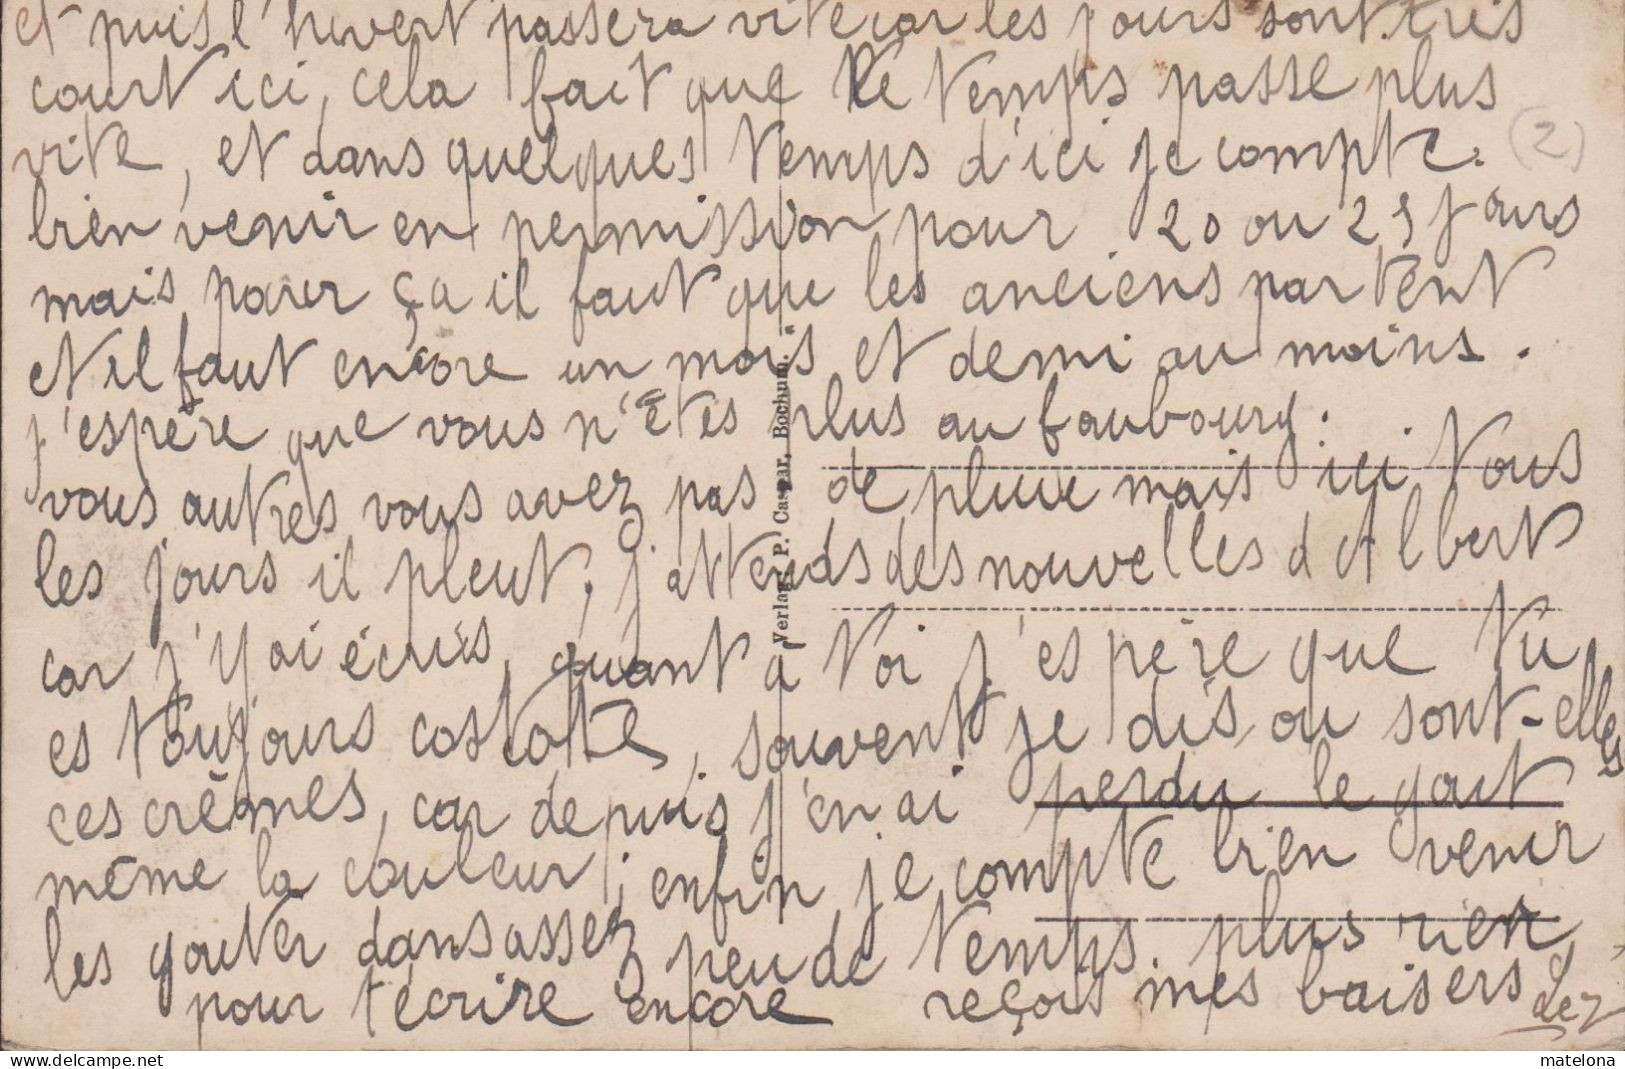 et puis l'hivert passera vite car les jours sont très
court ici, cela fait que le temps passe plus
vite, et dans quelques temps d'ici je compte
(2)
bien venir en permission pour 20 ou 25 jours
mais pour ça il faut que les anciens partent
et il faut encore un mois et demi au moins.
j'espère que vous n'êtes plus au faubourg.
vous autres vous avez pas de pluie mais ici tous
les jours il pleut, j'attends des nouvelles d'Albert
car j'y ai écris, quant à toi j'espère que tu
es toujours costote, souvent je dis ou sont-elles
ces crêmes, car depuis j'en ai perdu le gout
même la couleur, enfin je compte bien venir
les gouter dans assez peu de temps. plus rien
pour t'écrire encore reçois mes baisers
Verlag P. Caspar, Bochum.
www.delcampe.net
matelona